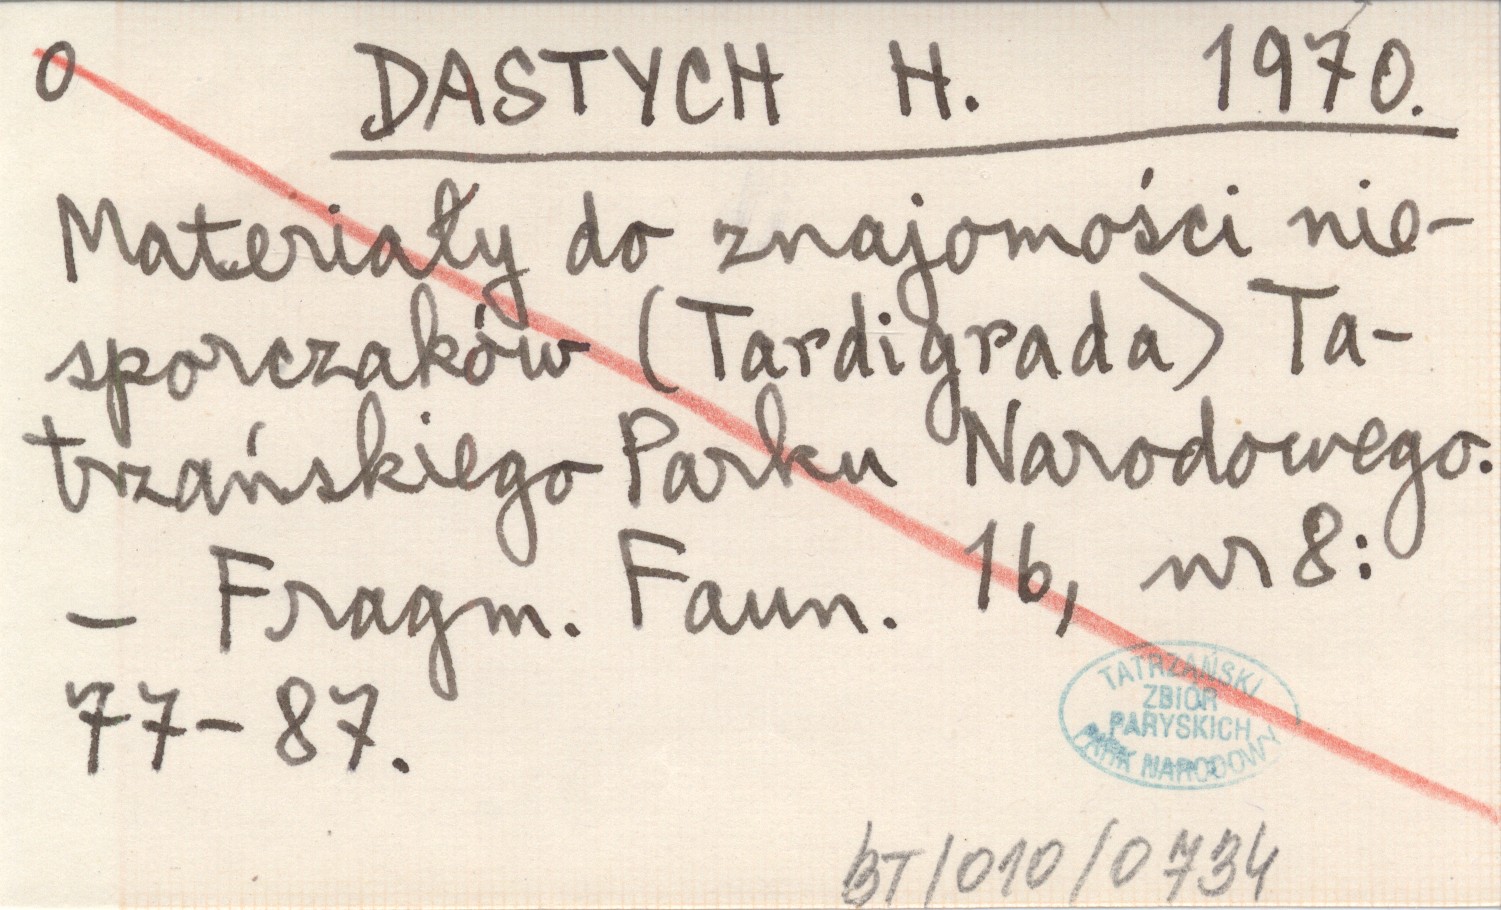 0 DASTYCH H. 1970.
Materiały do znajomości nie-
sporczaków (Tardigrada) Ta-
trzańskiego Parku Narodowego.
– Fragm. Faun. 16, nr 8:
77–87.
TATRZAŃSKI
ZBIÓR
PARYSKICH
PARK NARODOWY
BT/010/0734